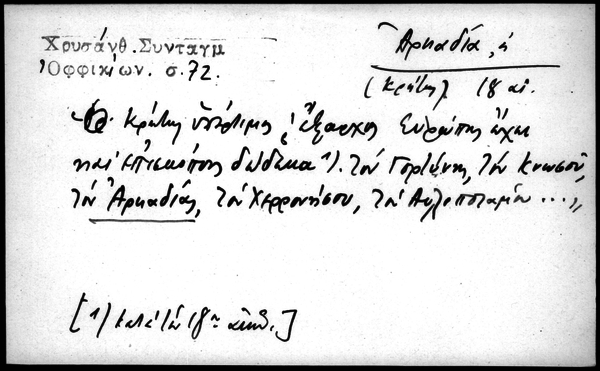 Χρυσάνθ. Συνταγμ
Ὀφφικίων. σ. 72.
Ἀρκαδία, ἡ
(Κρήτης) 18 αἰ.
Ὁ Κρήτης ὑπέρτιμος ἔξαρχος Εὐρώπης ἔχει
καὶ ἐπισκόπους δώδεκα 1). τὸν Γορτύνης, τὸν Κνωσοῦ,
τὸν Ἀρκαδίας, τὸν Χερρονήσου, τὸν Αὐλοποταμου ...,,
[1) κατὰ τὸν 18ον αἰῶ.]